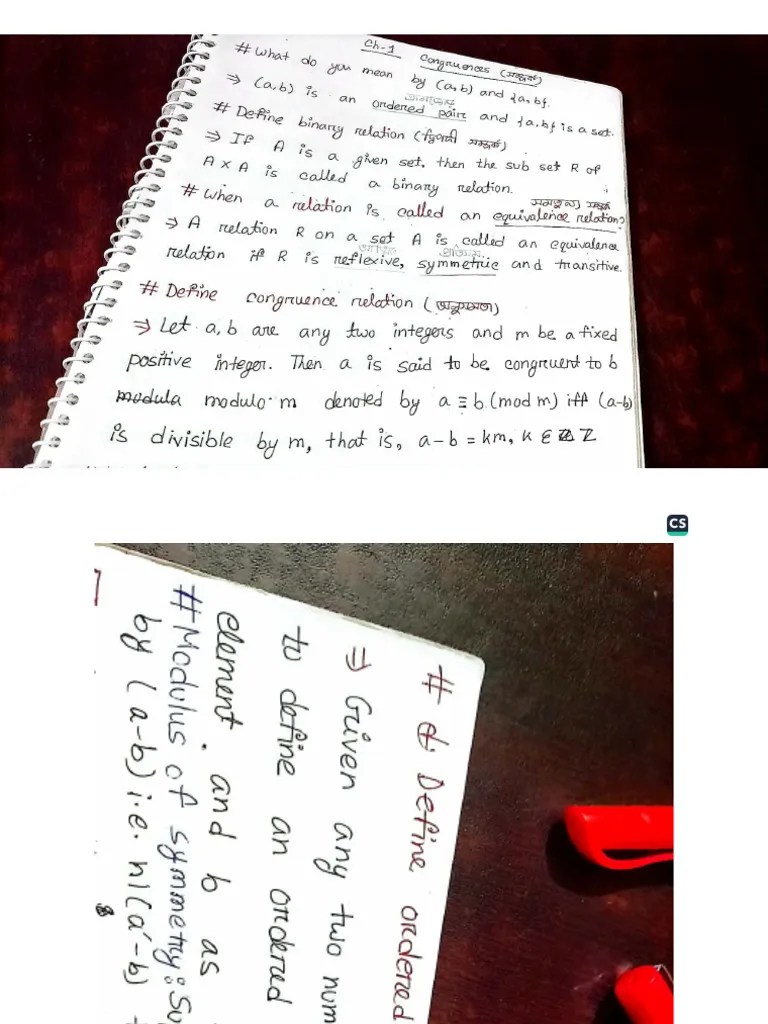 Ch-1 Congruences (সম্পর্ক)
# What do you mean by (a,b) and {a,b}.
⇒ (a,b) is an ordered pair and {a,b} is a set.
# Define binary relation (দ্বিপদী সম্পর্ক)
⇒ If A is a given set. then the sub set R of
A×A is called a binary relation.
সমতুল্য সম্পর্ক
# When a relation is called an equivalence relation?
⇒ A relation R on a set A is called an equivalence
relation if R is reflexive, symmetric and transitive.
# Define congruence relation (অনুসমতা)
⇒ Let a,b are any two integers and m be a fixed
positive integer. Then a is said to be congruent to b
modula modulo m denoted by a ≡ b (mod m) iff (a-b)
is divisible by m, that is, a-b = km, k ∈ Z
CS
# Define ordered
⇒ Given any two num
to define an ordered
element. and b as
# Modulus of symmetry: Su
by (a-b) i.e. n|(a-b)